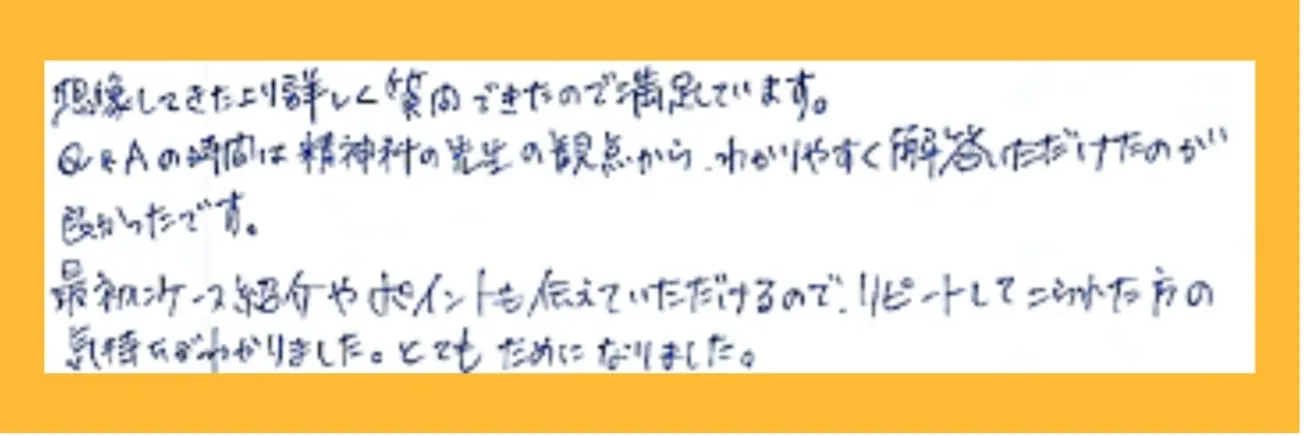 想像してきたより詳しく質問できたので満足しています。
Q&Aの時間は精神科の先生の観点から、わかりやすく解答いただけたのが
良かったです。
最初にケース紹介やポイントも伝えていただけるので、リピートしてこられた方の
気持ちがわかりました。とてもためになりました。